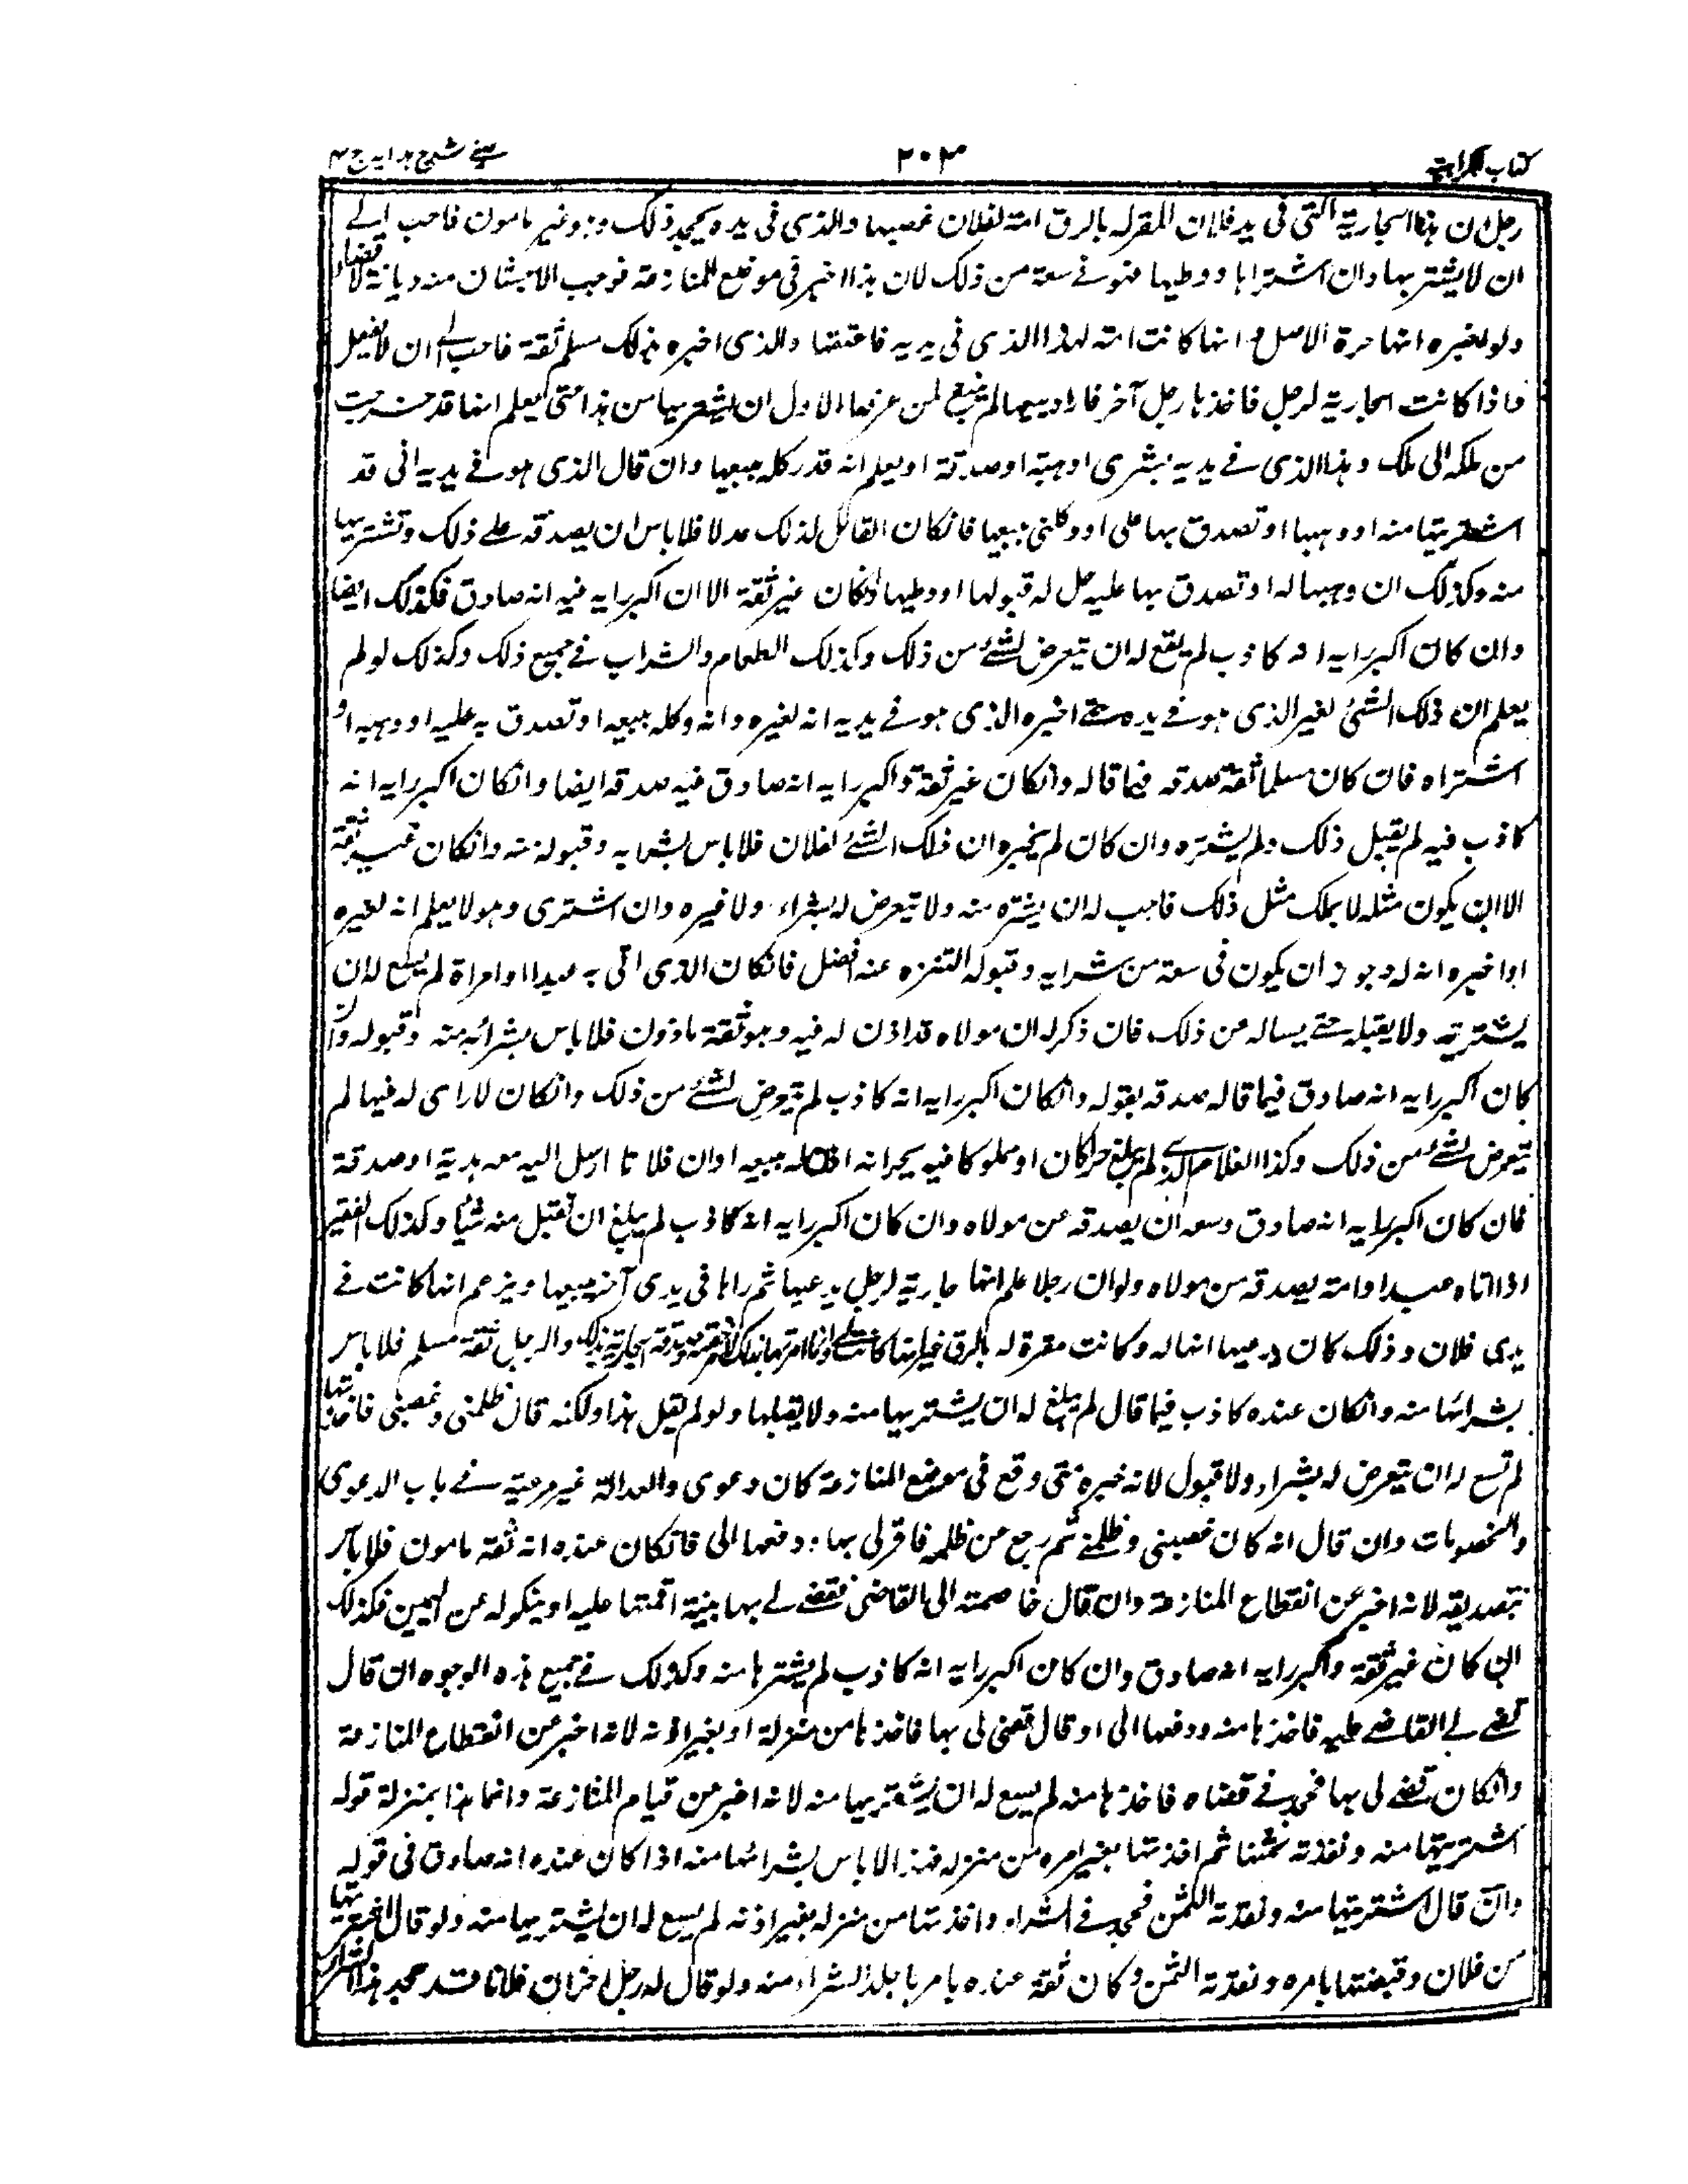 كتاب الكراهية
۲۰۳
عيني شرح هدايه ج ۴
رجل ان هذه الجارية التي في يد فلان المقر له بالرق امة لفلان غصبها والذي في يده يجحد ذلك وهو غير مامون فاحب الے
ان لا يشتريها وان اشتراها ووطيها فهو فے سعة من ذلك لان هذا اخبر فى موضع المنازعة فوجب الامتناع منه ديانة لا قضاء
ولو اخبره انها حرة الاصل او انها كانت امة لهذا الذى فى يديه فاعتقها والذى اخبره بذلك مسلم ثقة فاحب الے ان لا يفعل
فاذا كانت الجارية لرجل فاخذها رجل آخر فاراد بيعها لم ينبغ لمن عرفها الاول ان يشتريها من هذا حتى يعلم انها قد خرجت
من ملكه الى ملك هذا الذى فے يديه بشرى او هبة او صدقة او يعلم انه قد وكله ببيعها وان قال الذى هو فے يديه انى قد
اشتريتها منه او وهبها او تصدق بها على او وكلنى ببيعها فانكان القائل لذلك عدلا فلا باس ان يصدقه علے ذلك وتشتريها
منه وكذلك ان وهبها له او تصدق بها عليه حل له قبولها او وطيها وانكان غير ثقة الا ان اكبر رايه فيه انه صادق فكذلك ايضا
وان كان اكبر رايه انه كاذب لم يقع له ان يتعرض لشئ من ذلك وكذلك الطعام والشراب فے جميع ذلك وكذلك لو لم
يعلم ان ذلك الشئ لغير الذى هو فے يده حتے اخبره الذى هو فے يديه انه لغيره وانه وكله ببيعه او تصدق به عليه او وهبه او
اشتراه فان كان مسلما ثقة صدقه فيما قاله وانكان غير ثقة واكبر رايه انه صادق فيه صدقه ايضا وانكان اكبر رايه انه
كاذب فيه لم يقبل ذلك ولم يشتره وان كان لم يخبره ان ذلك الشئ لفلان فلا باس بشرايه وقبوله منه وانكان غير ثقة
الا ان يكون مثله لا يملك مثل ذلك فاحب له ان يشتره منه ولا يتعرض له بشراء ولا غيره وان اشترى وهو لا يعلم انه لغيره
او اخبره انه له رجوت ان يكون فى سعة من شرايه وقبوله التنزه عنه افضل فانكان الذى اتى به عبدا او امراة لم يسع له ان
يشتريه ولا يقبله حتے يساله عن ذلك فان ذكر له ان مولاه قد اذن له فيه وهو ثقة ماذون فلا باس بشرائه منه وقبوله وان
كان اكبر رايه انه صادق فيما قاله صدقه بقوله وانكان اكبر رايه انه كاذب لم يتعرض لشئ من ذلك وانكان لا راى له فيها لم
يتعرض لشئ من ذلك وكذا الغلام الذے لم يبلغ حرا كان او مملوكا فيه يخبر انه اذن له ببيعه او ان فلانا ارسل اليه معه هدية او صدقة
فان كان اكبر رايه انه صادق وسعه ان يصدقه عن مولاه وان كان اكبر رايه انه كاذب لم يبلغ ان يقبل منه شيئا وكذلك الفقير
اذا اتاه عبد او امة يصدقه من مولاه ولو ان رجلا علم انها جارية لرجل يدعيها ثم راها فى يدى آخر يبيعها ويزعم انها كانت فے
يدى فلان وذلك كان يدعيها انها له وكانت مقرة له بالرق والرجل ثقة مسلم فلا باس
بشرائها منه وانكان عنده كاذب فيما قال لم يبلغ له ان يشتريها منه ولا يقبلها ولو لم يقبل هذا ولكنه قال ظلمنى وغصبنى فاخذتها
لم تسع له ان يتعرض له بشراء ولا قبول لانه خبره متى وقع فى موضع المنازعة كان دعوى والعدالة غير مرعية فے باب الدعوى
والخصومات وان قال انه كان غصبنى وظلمنے ثم رجع عن ظلمه فاقر لى بها ودفعها الى فانكان عنده انه ثقه مامون فلا باس
بتصديقه لانه اخبر عن انقطاع المنازعة وان قال خاصمته الى القاضى فقضے لے بها ببينة اقمتها عليه او ينكوله عن اليمين فكذلك
ان كان غير ثقة واكبر رايه انه صادق وان كان اكبر رايه انه كاذب لم يشترها منه وكذلك فے جميع هذه الوجوه ان قال
قضے لے القاضے عليه فاخذها منه ودفعها الى او قال قضى لى بها فاخذها من منزله او بغير اذنه لانه اخبر عن انقطاع المنازعة
وانكان قضے لى بها فجحد فے قضاه فاخذها منه لم يسع له ان يشتريها منه لانه اخبر عن قيام المنازعة وانما هذا بمنزلة قوله
اشتريتها منه ونقدته ثمنها ثم اخذتها بغير امره من منزله فهذا لا باس بشرائها منه اذا كان عنده انه صادق فى قوله
وان قال اشتريتها منه ونقدته الثمن فجحد فے الشراء واخذتها من منزله بغير اذنه لم يسع له ان يشتريها منه ولو قال اشتريتها
من فلان وقبضتها بامره ونقدته الثمن وكان ثقة عنده بامر بابلد الشراء منه ولو قال له رجل اخر ان فلانا قد جحد هذا الشراء